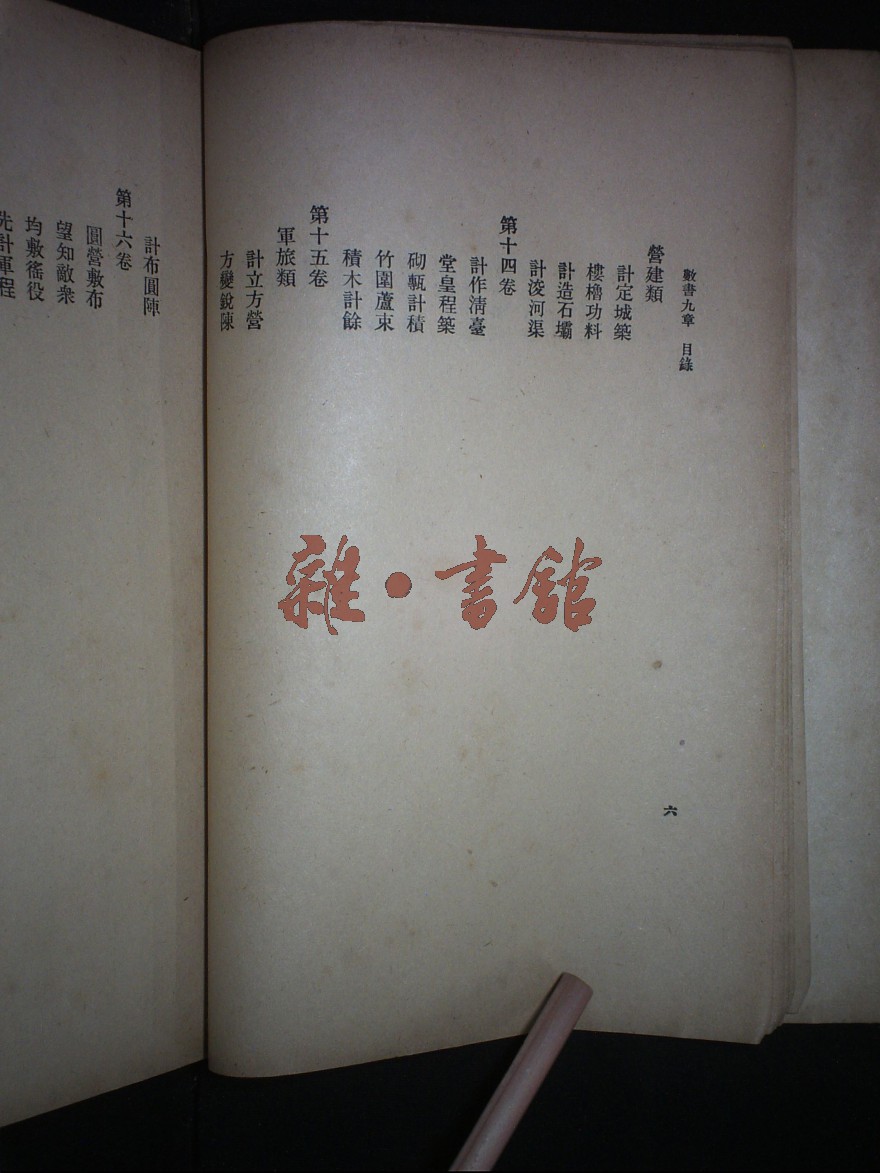 數書九章 目錄
營建類
計定城築
樓櫓功料
計造石壩
計浚河渠
第十四卷
計作清臺
堂皇程築
砌甎計積
竹圍蘆束
積木計餘
第十五卷
軍旅類
計立方營
方變銳陳
六
計布圓陣
第十六卷
圓營敷布
望知敵衆
均敷徭役
先計軍程
雜·書館